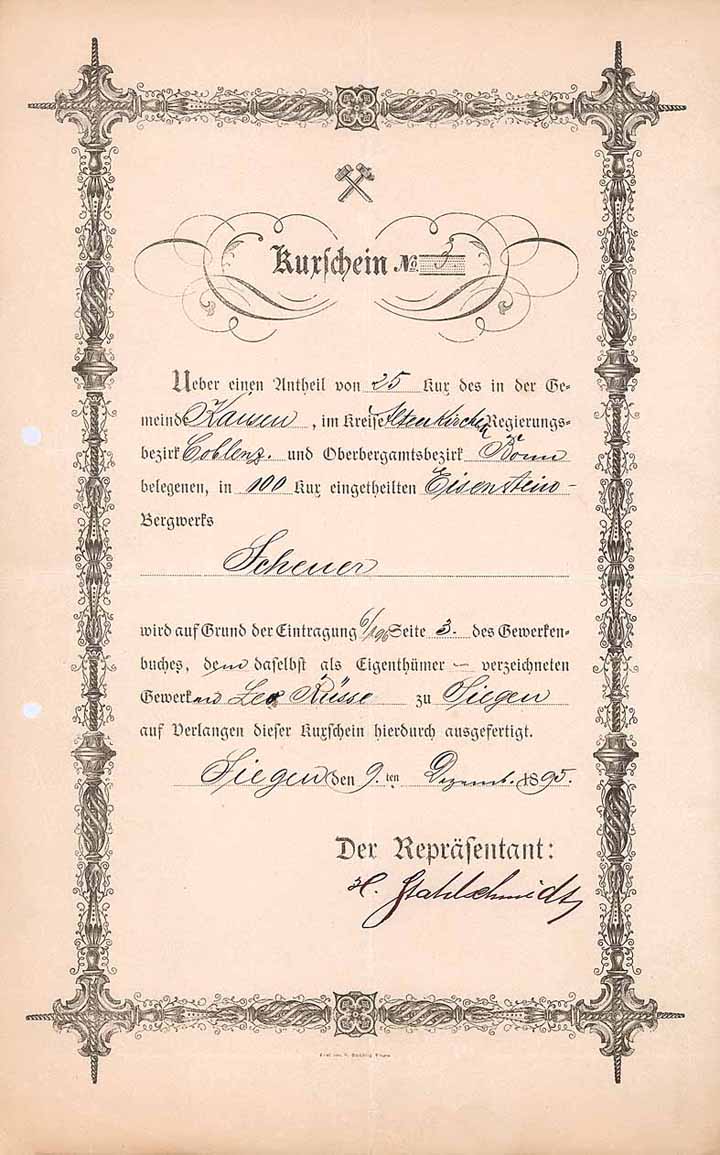 Kuxschein № 3.
Ueber einen Antheil von 25 Kux des in der Ge-
meinde Kausen, im Kreise Altenkirchen Regierungs-
bezirk Coblenz. und Oberbergamtsbezirk Bonn
belegenen, in 100 Kux eingetheilten Eisenstein-
Bergwerks
Scheuer
wird auf Grund der Eintragung Seite 3. des Gewerken-
buches, dem daselbst als Eigenthümer verzeichneten
Gewerken Leo Rüsse zu Siegen
auf Verlangen dieser Kuxschein hierdurch ausgefertigt.
Siegen den 9.ten Dezemb. 1895.
Der Repräsentant:
H. Stahlschmidt